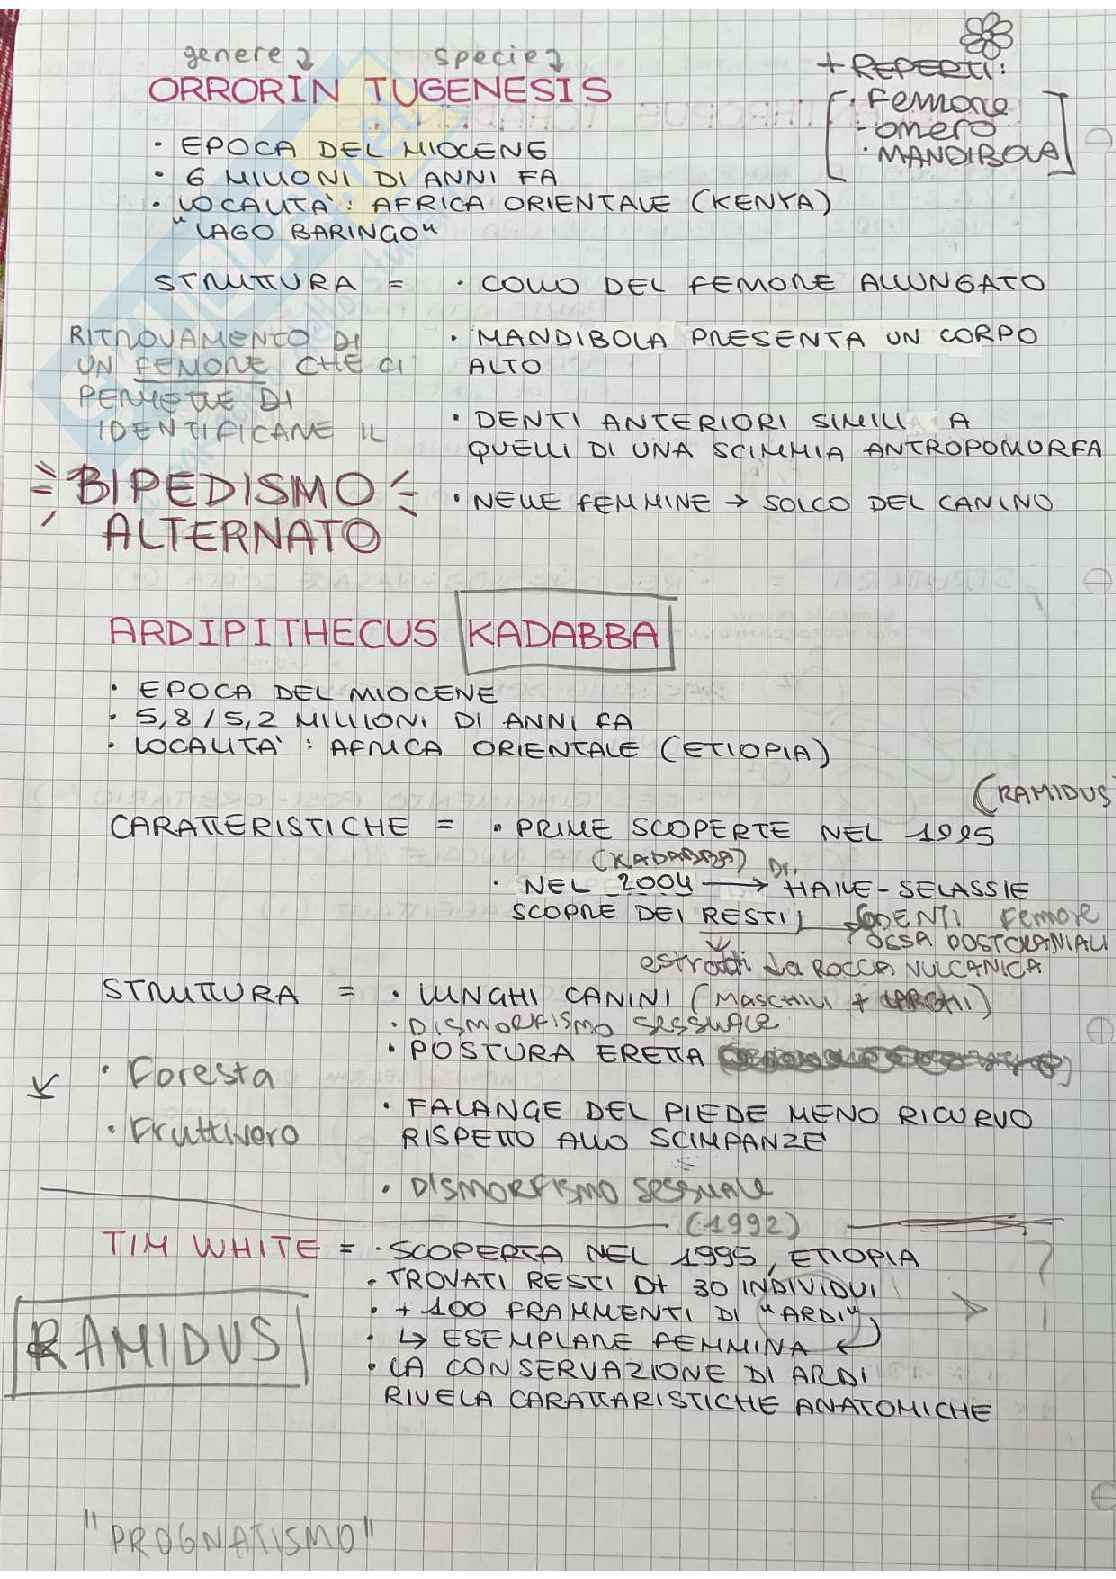 genere specie
ORRORIN TUGENESIS
+ REPERTI:
· Femore
- omero
· MANDIBOLA
· EPOCA DEL MIOCENE
· 6 MILIONI DI ANNI FA
· LOCALITA': AFRICA ORIENTALE (KENYA)
"LAGO BARINGO"
STRUTTURA = · COLLO DEL FEMORE ALLUNGATO
RITROVAMENTO DI
UN FEMORE CHE CI
PERMETTE DI
IDENTIFICARE IL
BIPEDISMO
ALTERNATO
· MANDIBOLA PRESENTA UN CORPO
ALTO
· DENTI ANTERIORI SIMILI A
QUELLI DI UNA SCIMMIA ANTROPOMORFA
· NELLE FEMMINE → SOLCO DEL CANINO
ARDIPITHECUS KADABBA
· EPOCA DEL MIOCENE
· 5,8/5,2 MILIONI DI ANNI FA
· LOCALITA' : AFRICA ORIENTALE (ETIOPIA)
(RAMIDUS)
CARATTERISTICHE = · PRIME SCOPERTE NEL 1995
(KADABBA) Dr.
· NEL 2004 → HAILE-SELASSIE
SCOPRE DEI RESTI → DENTI Femore
OSSA POSTCRANIALI
estratti da ROCCA VULCANICA
STRUTTURA = · LUNGHI CANINI (MASCHILI + LARGHI)
· DISMORFISMO SESSUALE
· POSTURA ERETTA
· Foresta
· Fruttivoro
· FALANGE DEL PIEDE MENO RICURVO
RISPETTO ALLO SCIMPANZE'
· DISMORFISMO SESSUALE
(1992)
TIM WHITE = · SCOPERTA NEL 1995, ETIOPIA
· TROVATI RESTI DI + 30 INDIVIDUI
· + 100 FRAMMENTI DI "ARDI"
· ↳ ESEMPLARE FEMMINA
· LA CONSERVAZIONE DI ARDI
RIVELA CARATTARISTICHE ANATOMICHE
RAMIDUS
"PROGNATISMO"